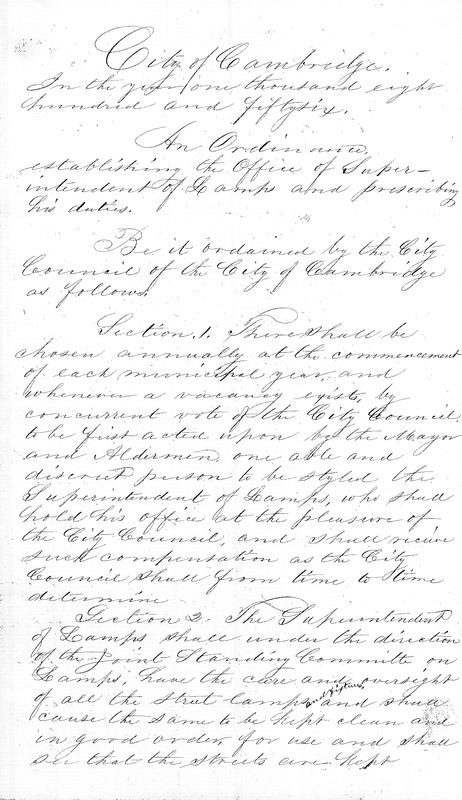 City of Cambridge.
In the year one thousand eight
hundred and fiftysix.
An Ordinance,
establishing the Office of Super-
intendent of Lamps and prescribing
his duties.
Be it ordained by the City
Council of the City of Cambridge
as follows.
Section. 1. There shall be
chosen annually at the commencement
of each municipal year, and
whenever a vacancy exists, by
concurrent vote of the City Council,
to be first acted upon by the Mayor
and Aldermen, one able and
discreet person to be styled the
Superintendent of Lamps, who shall
hold his office at the pleasure of
the City Council, and shall receive
such compensation as the City
Council shall from time to time
determine
Section 2. The Superintendent
of Lamps shall under the direction
of the Joint Standing Committee on
Lamps, have the care and oversight
of all the street lamps and fixtures, and shall
cause the same to be kept clean and
in good order, for use and shall
see that the streets are kept